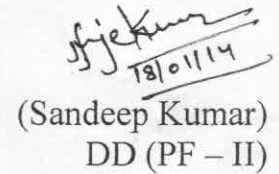 18/01/14
(Sandeep Kumar)
DD (PF – II)